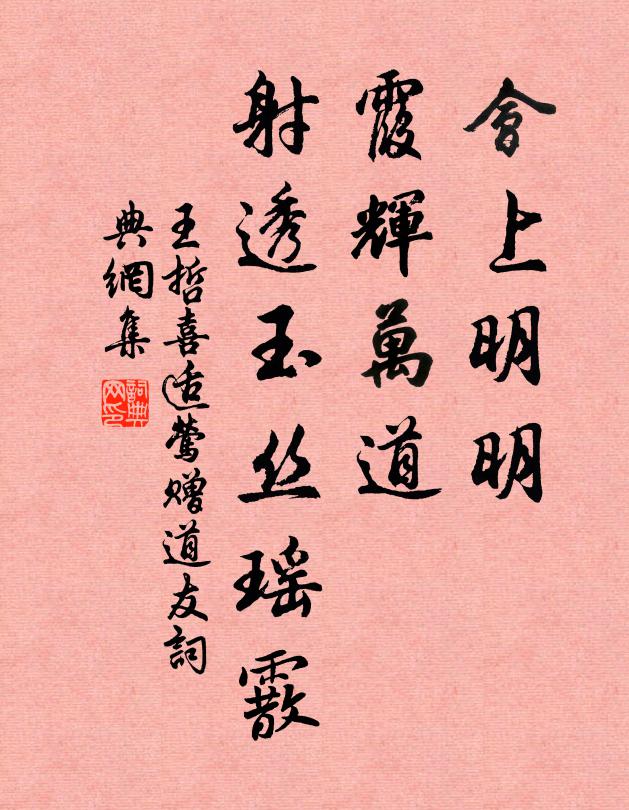 會上明明
霞輝萬道
射透玉丝瑶霰
王哲喜迁莺赠道友詞
典網集
詞典網印